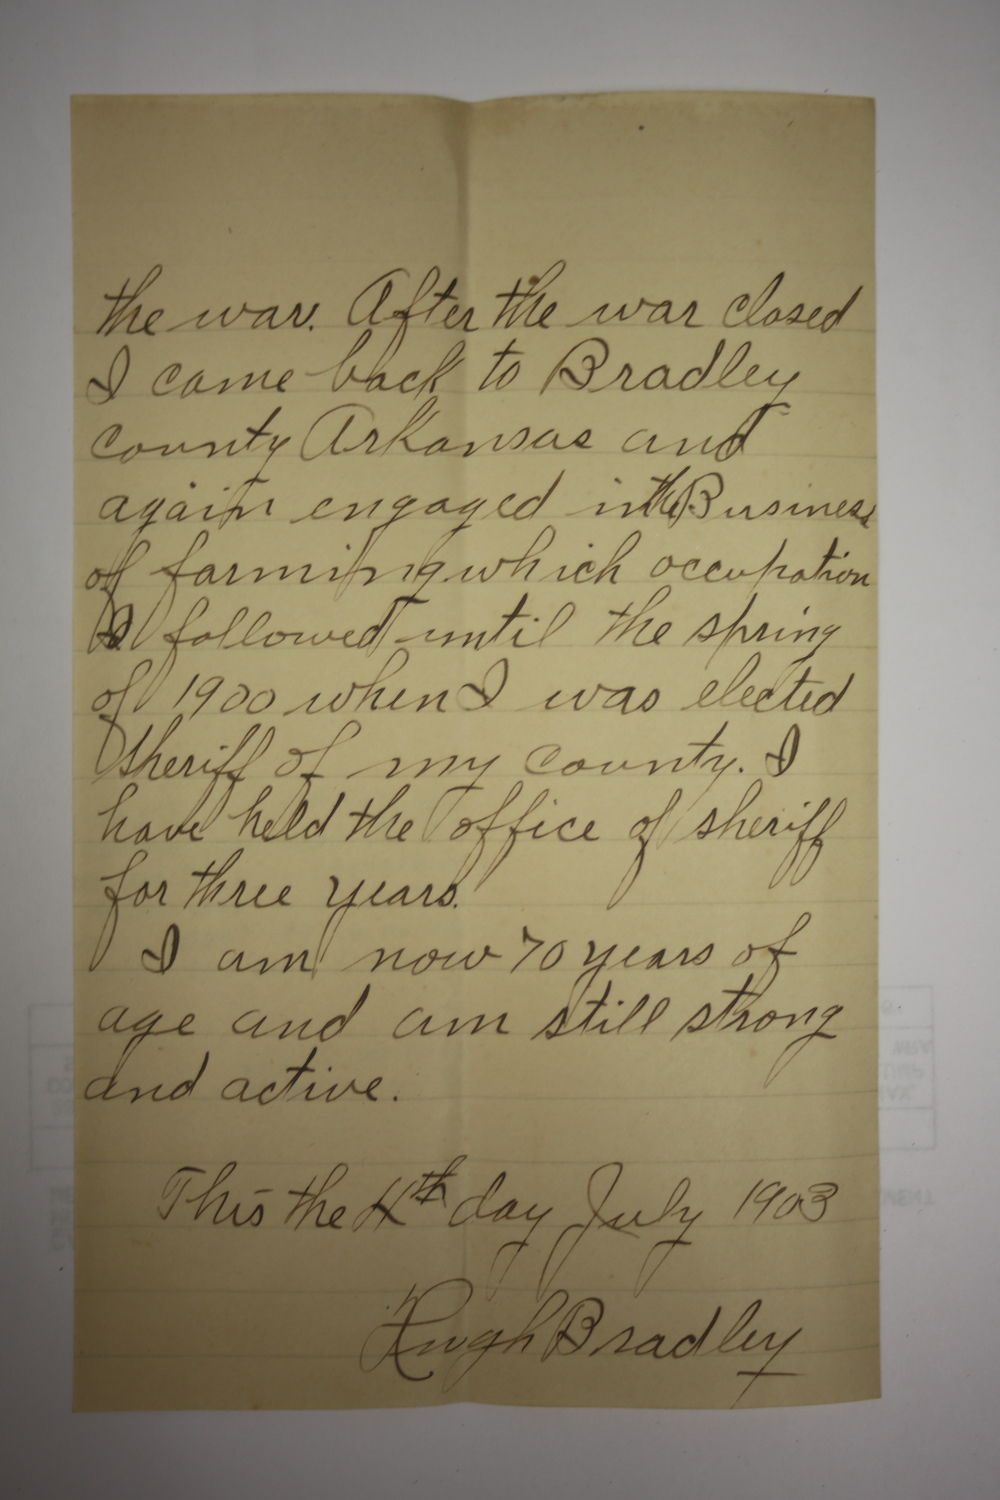 the war. After the war closed
I came back to Bradley
county Arkansas and
again engaged in the Business
of farming which occupation
I followed until the spring
of 1900 when I was elected
sheriff of my county. I
have held the office of sheriff
for three years.
I am now 70 years of
age and am still strong
and active.
This the 4th day July 1903
Hugh Bradley